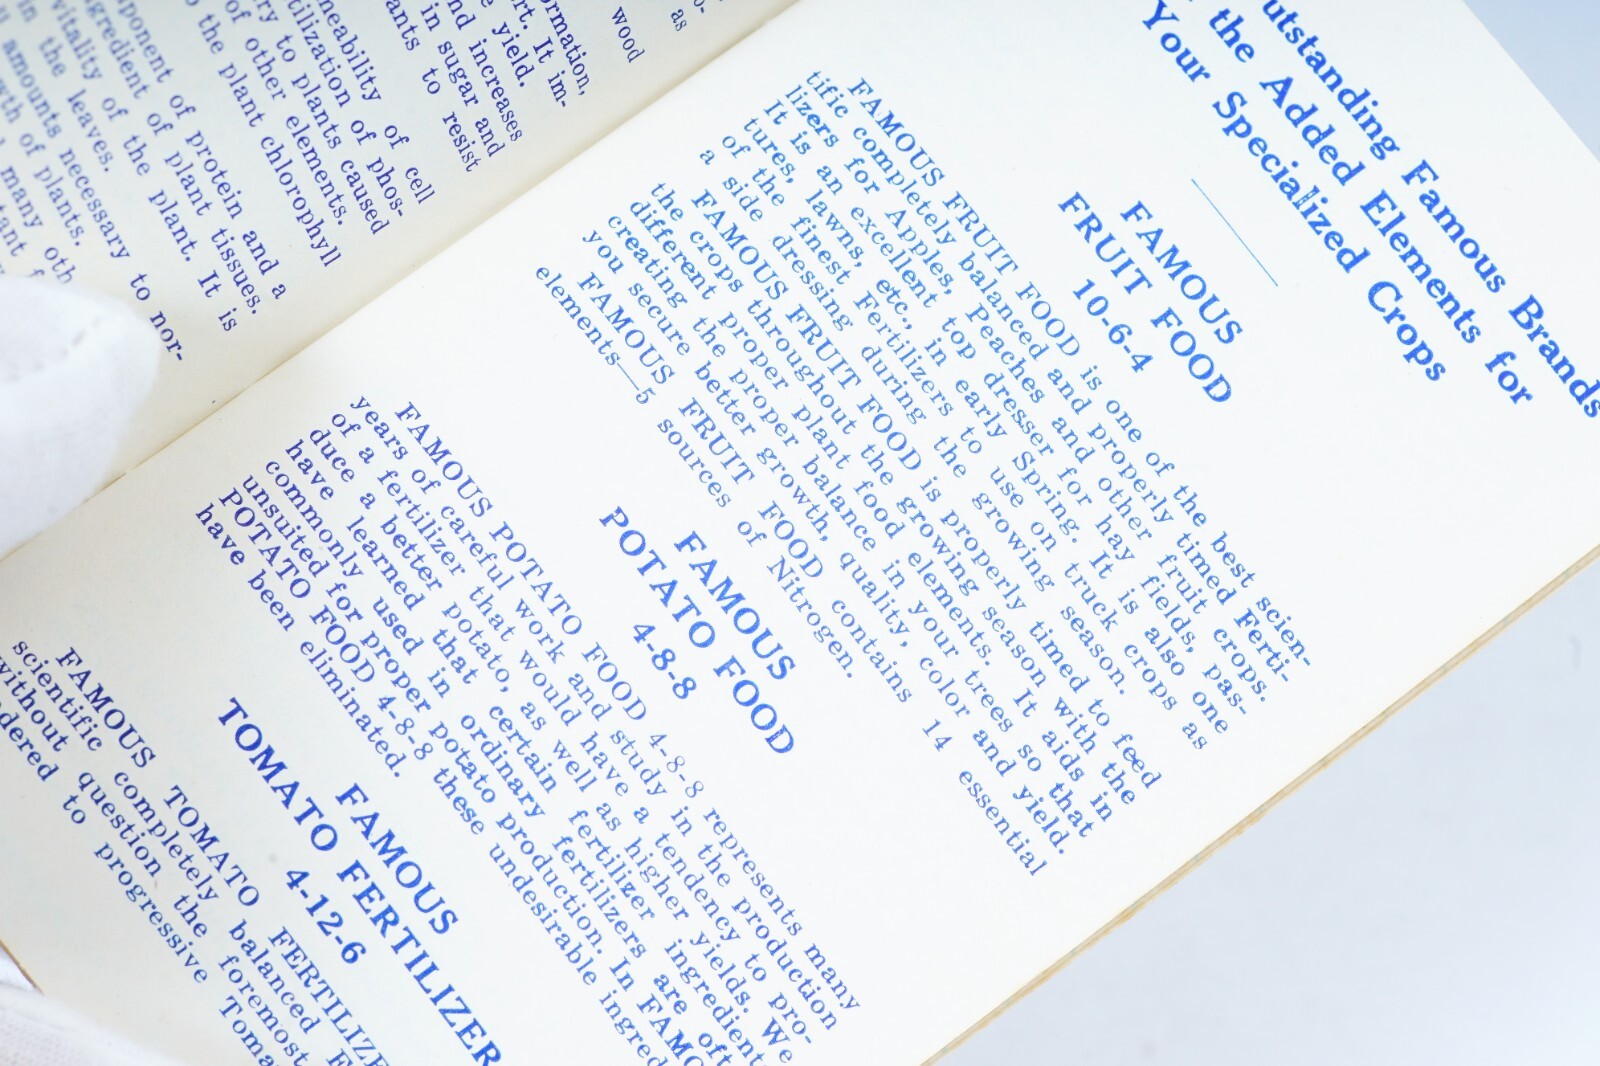 ormation,
wood
as
rt. It im-
yield.
nd increases
in sugar and
ants to resist
neability of cell
tilization of phos-
ry to plants caused
of other elements.
the plant chlorophyll
ponent of protein and a
gredient of plant tissues.
vitality of the plant. It is
in the leaves.
amounts necessary to nor-
wth of plants.
many oth
utstanding Famous Brands
the Added Elements for
Your Specialized Crops
FAMOUS
FRUIT FOOD
10-6-4
FAMOUS FRUIT FOOD is one of the best scien-
tific completely balanced and properly timed Ferti-
lizers for Apples, Peaches and other fruit crops.
It is an excellent top dresser for hay fields, pas-
tures, lawns, etc., in early Spring. It is also one
of the finest Fertilizers to use on truck crops as
a side dressing during the growing season.
FAMOUS FRUIT FOOD is properly timed to feed
the crops throughout the growing season with the
different proper plant food elements. It aids in
creating the proper balance in your trees so that
you secure better growth, quality, color and yield.
FAMOUS FRUIT FOOD contains 14 essential
elements—5 sources of Nitrogen.
FAMOUS
POTATO FOOD
4-8-8
FAMOUS POTATO FOOD 4-8-8 represents many
years of careful work and study in the production
of a fertilizer that would have a tendency to pro-
duce a better potato, as well as higher yields. We
have learned that certain fertilizer ingredient
commonly used in ordinary fertilizers are oft
unsuited for proper potato production. In FAMO
POTATO FOOD 4-8-8 these undesirable ingred
have been eliminated.
FAMOUS
TOMATO FERTILIZER
4-12-6
FAMOUS TOMATO FERTILIZE
scientific completely balanced F
without question the foremost
dered to progressive Toma